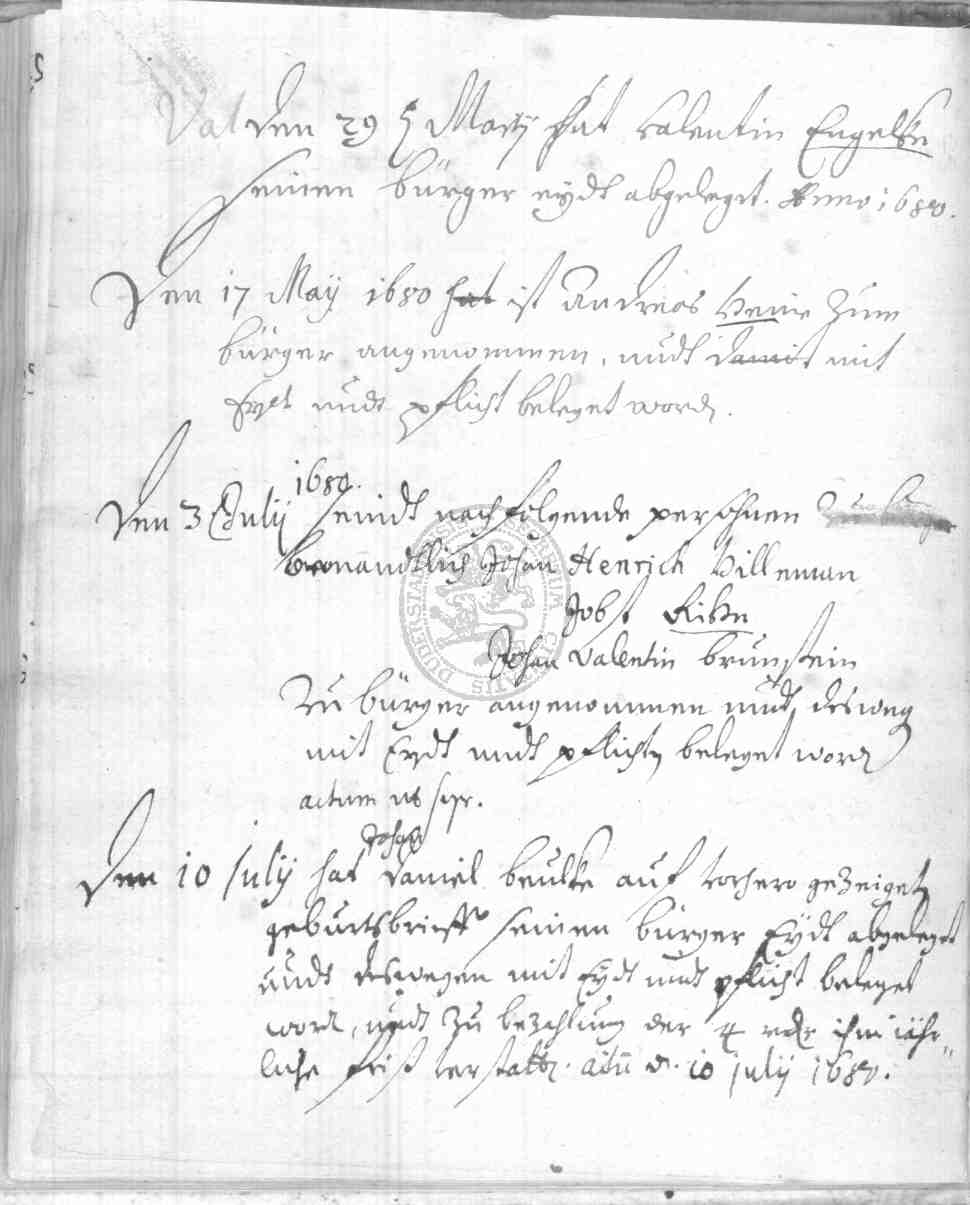 Val den 29 Martij hat valentin Engelke
seinen bürger eydt abgeleget. Anno 1680.
Den 17 Maij 1680 hat ist Andreas Heine zum
bürger angenommen, undt damit mit
Eydt undt pflicht beleget word.
1680.
Den 3 Julij seindt nachfolgende persohnen
benandtlich Johan Henrich Villeman
Jobst
Johan Valentin brunstein
zu bürger angenommen undt desweg
mit Eydt undt pflicht beleget word
actum ut supr.
Johan
Den 10 Julij hat Daniel beulke auf vorhero gezeigete
geburtsbrieff seinen bürger Eydt abgeleget
undt deswegen mit Eydt undt pflicht beleget
word, undt zu bezahlung der 4 ihm jähr
liche frist verstattet. 10 Julij 1680.
SIGILLUM CIVITATIS DUDERSTAD